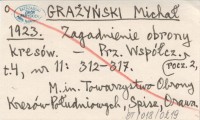 GRAŻYŃSKI Michał
1923. Zagadnienie obrony
kresów. – Prz. Współcz.,
rocz. 2,
t.4, nr 11: 312-317.
M.in. Towarzystwo Obrony
Kresów Południowych, Spisz, Orawa.